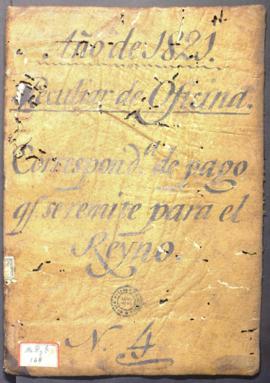 Año de 1821.
Peculiar de Oficina.
Correspond.ª de pago
q.e se remite para el
Reyno.
N. 4